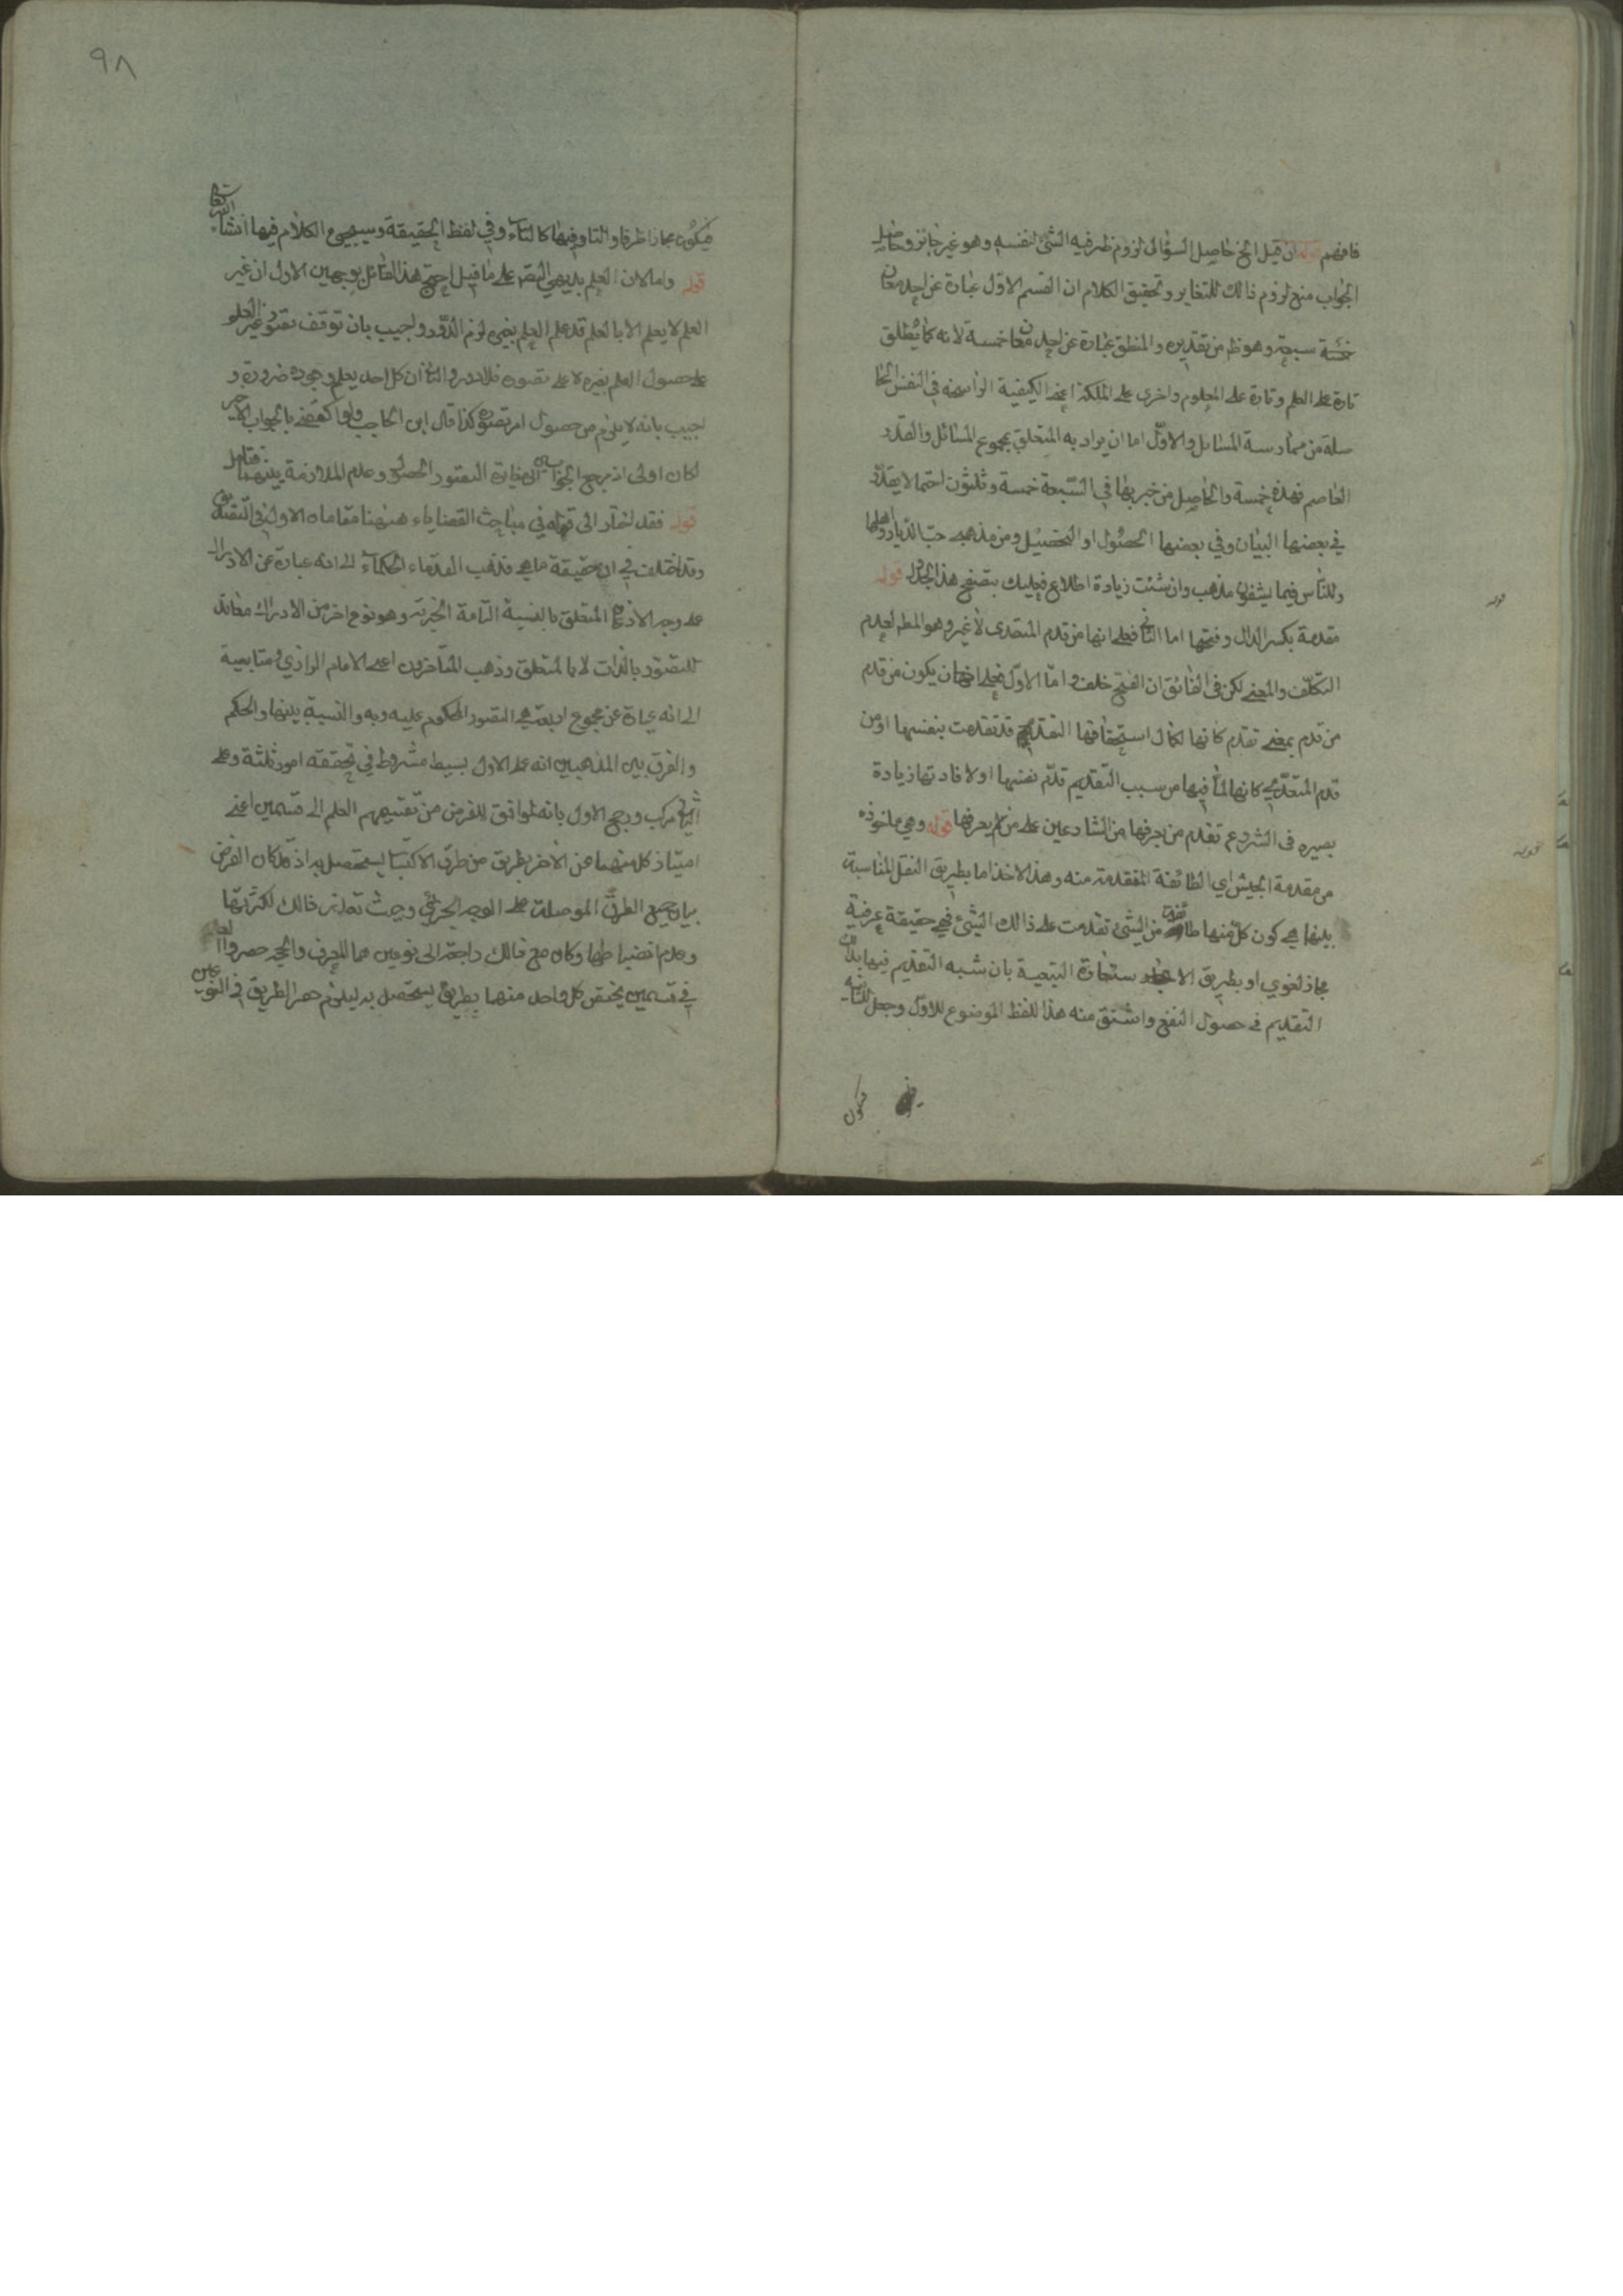 فافهم قوله ان قيل الخ حاصل السؤال لزوم ظرفية الشئ لنفسه وهو غير جائز وحاصل
الجواب منع لزوم ذالك للتغاير وتحقيق الكلام ان القسم الاول عبارة عن احد معان
سبعة وهو ظ من تقديره والمنطق عبارة عن احد معان خمسة لانه كما يطلق
تارة على العلم وتارة على المعلوم واخرى على الملكة اعنى الكيفية الراسخة في النفس الحا
صلة من ممارسة المسائل والاول اما ان يراد به المتعلق بمجموع المسائل والقدر
العاصم فهذه خمسة والحاصل من ضربها في السبعة خمسة وثلثون احتمالا يقدر
في بعضها البيان وفي بعضها الحصول او التحصيل ومن مذهبه حب الديار واهلها
وللناس فيما يعشقون مذهب وان شئت زيادة اطلاع فعليك بتصفح هذا الجدول قوله
مقدمة بكسر الدال وفتحها اما الثانى فعلى انها من قدم المتعدى لا غير وهو المط لعدم
التكلف والمعنى لكن في الفائق ان الفتح خلف واما الاول فعلى ان يكون من قدم
من قدم بمعنى تقدم كانها لكمال استحقاقها التقديم قد تقدمت بنفسها او من
قدم المتعدى كانها لما فيها من سبب التقديم تقدم نفسها او لافادتها زيادة
بصيره في الشروع تقدم من عرفها من الشارعين على من لم يعرفها قوله وهي ماخوذه
من مقدمة الجيش اي الطائفة المتقدمة منه وهذا الاخذ اما بطريق النقل للمناسبة
بينهما هي كون كل منهما طائفة من الشئ تقدمت على ذالك الشئ فهي حقيقة عرفية
مجاز لغوي او بطريق الاستعارة التبعية بان شبه التقديم فيها بذلك
التقديم في حصول النفع واشتق منه هذا اللفظ الموضوع للاول وجعل للثانية
فيكون
٩٨
فيكون مجازا ظرفا والتاء فيها كالتاء في لفظ الحقيقة وسيجيئ الكلام فيها انشاء الله تعالى
قوله واما لان العلم بديهي التصور على ما قيل احتج هذا القائل بوجهين الاول ان غير
العلم لا يعلم الا بالعلم فلو علم العلم بغيره لزم الدور واجيب بان توقف تصور غير العلم
على حصول العلم بغيره لا على تصوره فلا دور والثانى ان كل احد يعلم وجوده ضرورة و
اجيب بانه لا يلزم من حصول امر تصوره كذا قال ابن الحاجب ولو اكتفى بالجواب الاخير
لكان اولى اذ مرجع الجوابين الى مغايرة التصور الحصول وعدم الملازمة بينهما فتامل
قوله فقد اشار الى قوله في مباحث القضاياء ههنا مقامان الاول في التصديق
وقد اختلف في ان حقيقة ما هي فذهب القدماء الحكماء الى انه عبارة عن الادراك
على وجه الاذعان المتعلق بالنسبة التامة الخبرية وهو نوع اخر من الادراك مغائر
للتصور بالذات لا بالمتعلق وذهب المتأخرون اعنى الامام الرازي ومتابعيه
الى انه عبارة عن مجموع اربعة هي التصور المحكوم عليه وبه والنسبة بينهما والحكم
والفرق بين المذهبين انه على الاول بسيط مشروط في تحققه امور ثلثة وعلى
الثانى مركب ورجح الاول بانه الموافق للغرض من تقسيمهم العلم الى قسمين اعنى
امتياز كل منهما عن الاخر بطريق من طرق الاكتساب يستحصل به اذ لما كان الغرض
بيان جميع الطرق الموصلة على الوجه الجزئي وحيث تعذر ذالك لكثرتها
وعدم انضباطها وكان مع ذالك راجعة الى نوعين هما المعرف والحجة حصروا العلم
في قسمين يختص كل واحد منهما بطريق يستحصل به ليلزم حصر الطريق في النوعين